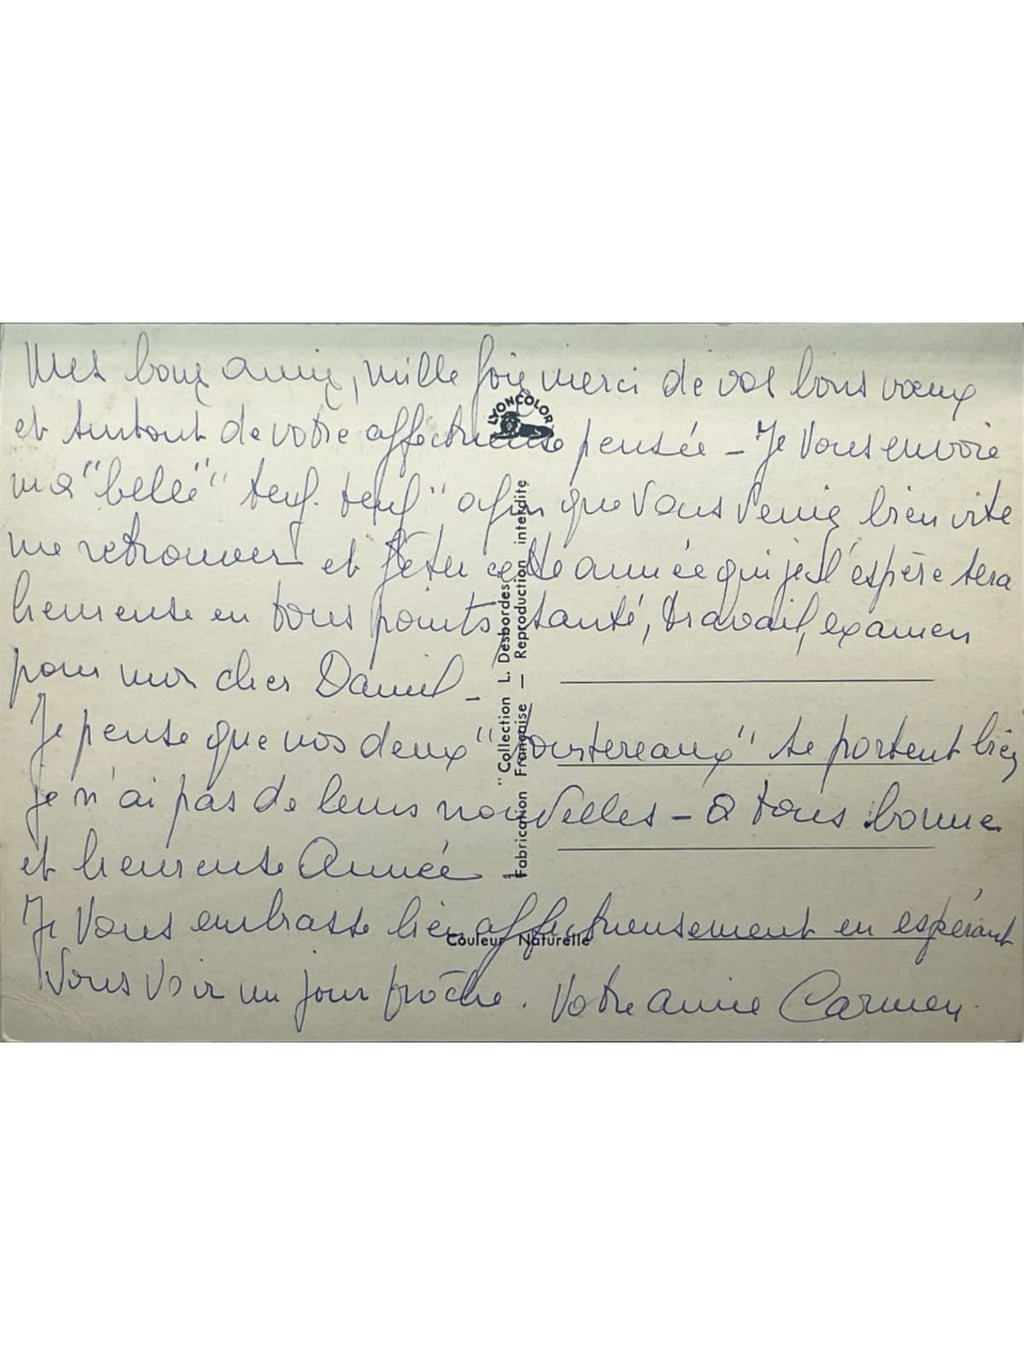 Mes bons amis, mille fois merci de vos bons vœux
et surtout de votre affectueuse pensée - Je vous envoie
ma "belle" "teuf. teuf" afin que vous veniez bien vite
me retrouver et fêter cette année qui je l'espère sera
heureuse en tous points, santé, travail, examen
pour mon cher Daniel -
Je pense que vos deux se portent bien
je n'ai pas de leurs nouvelles - à tous bonne
et heureuse Année -
Je vous embrasse bien affectueusement en espérant
vous voir un jour proche. Votre amie Carmen.
LYONCOLOR
"Collection L. Desbordes"
Fabrication Française — Reproduction interdite
Couleur Naturelle